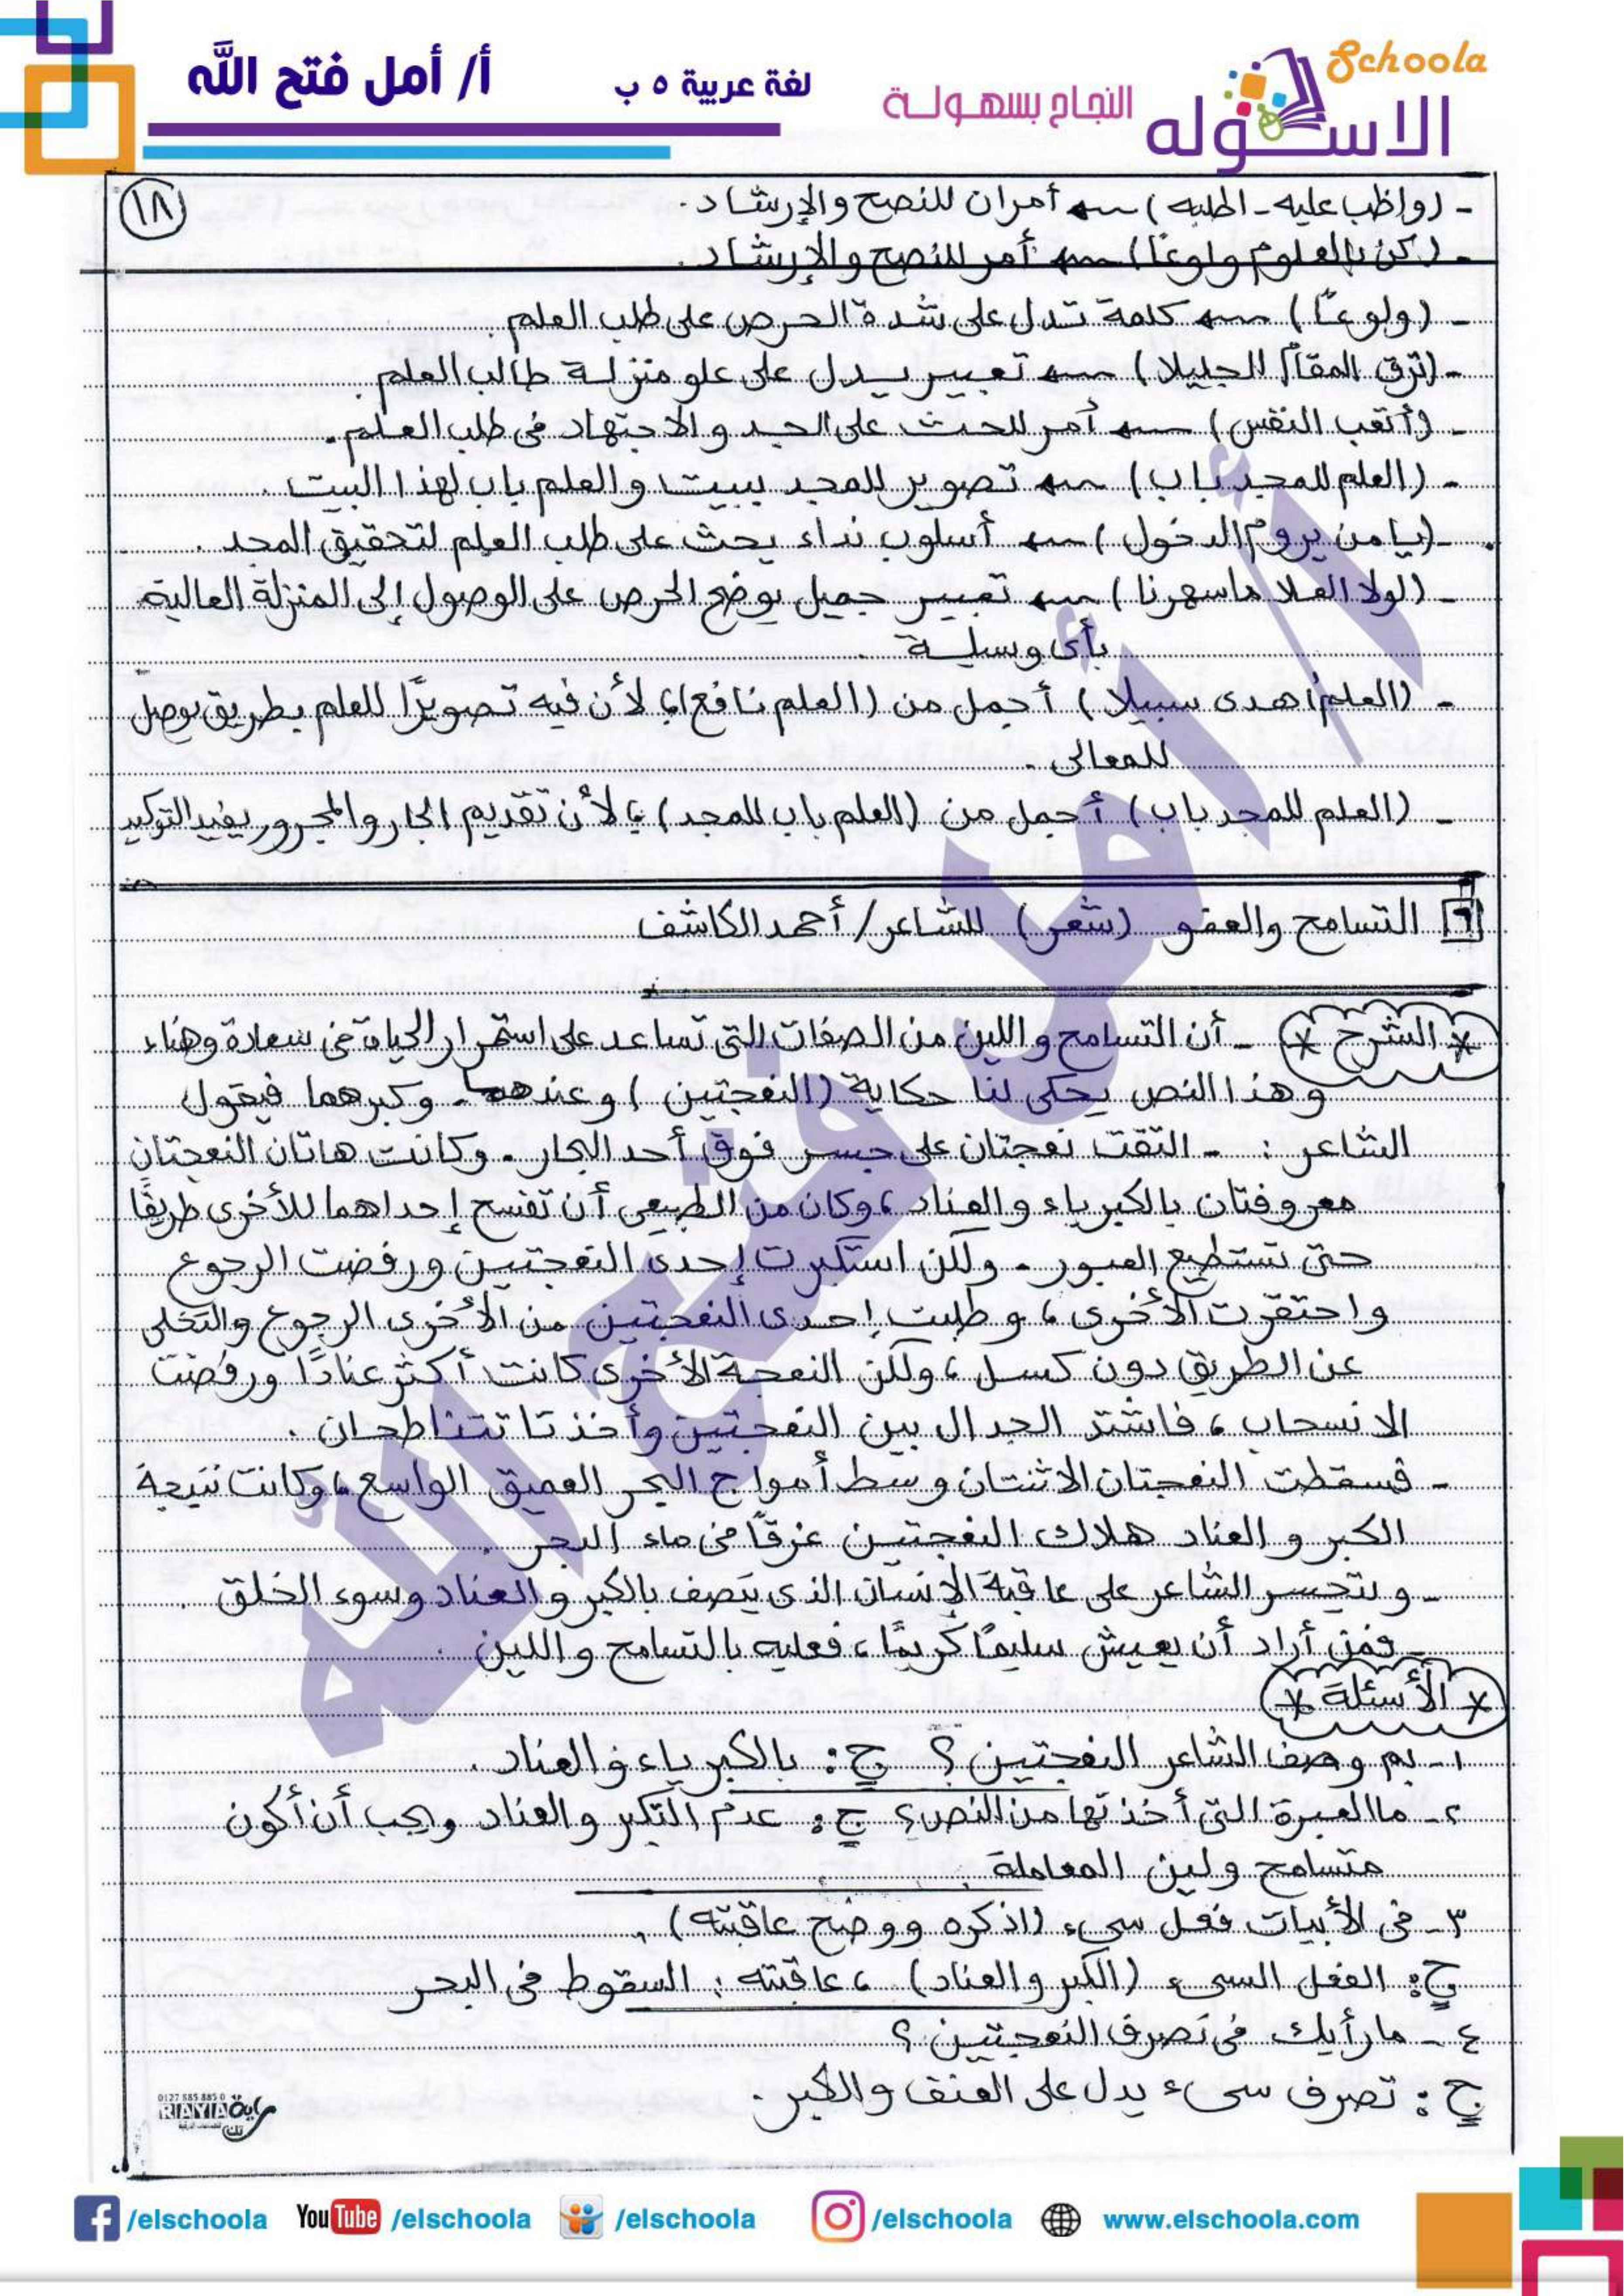 Schoola
الاسكوله
النجاح بسهولة
لغة عربية ٥ ب
أ/ أمل فتح الله
١٨
- (واظب عليه - اطلبه) ← أمران للنصح والإرشاد.
- (كن بالعلوم ولوعًا) ← أمر للنصح والإرشاد.
- (ولوعًا) ← كلمة تدل على شدة الحرص على طلب العلم.
- (ترق المقام الجليلا) ← تعبير يدل على علو منزلة طالب العلم.
- (أتعب النفس) ← أمر للحث على الجد والاجتهاد في طلب العلم.
- (العلم للمجد باب) ← تصوير للمجد ببيت والعلم باب لهذا البيت.
- (يا من يروم الدخول) ← أسلوب نداء يحث على طلب العلم لتحقيق المجد.
- (لولا العلا ما سهرنا) ← تعبير جميل يوضح الحرص على الوصول إلى المنزلة العالية
بأى وسيلة.
- (العلم أهدى سبيلا) أجمل من (العلم نافع)؛ لأن فيه تصويرًا للعلم بطريق يوصل
للمعالى.
- (العلم للمجد باب) أجمل من (العلم باب للمجد)؛ لأن تقديم الجار والمجرور يفيد التوكيد
٦ التسامح والعفو (شعر) للشاعر/ أحمد الكاشف
* الشرح * - أن التسامح واللين من الصفات التى تساعد على استمرار الحياة فى سعادة وهناء
وهذا النص يحكى لنا حكاية (النعجتين) وعندهما - وكبرهما فيقول
الشاعر : - التقت نعجتان على جسر فوق أحد البحار. وكانت هاتان النعجتان
معروفتان بالكبرياء والعناد، وكان من الطبيعى أن تفسح إحداهما للأخرى طريقًا
حتى تستطيع العبور. ولكن استكبرت إحدى النعجتين ورفضت الرجوع
واحتقرت الأخرى، وطلبت إحدى النعجتين من الأخرى الرجوع والتخلى
عن الطريق دون كسل، ولكن النعجة الأخرى كانت أكثر عنادًا ورفضت
الانسحاب، فاشتد الجدال بين النعجتين وأخذتا تتناطحان.
- فسقطت النعجتان الاثنتان وسط أمواج البحر العميق الواسع، وكانت نتيجة
الكبر والعناد هلاك النعجتين غرقًا فى ماء البحر.
- ويتحسر الشاعر على عاقبة الإنسان الذى يتصف بالكبر والعناد وسوء الخلق.
- فمن أراد أن يعيش سليمًا كريمًا، فعليه بالتسامح واللين.
* الأسئلة *
١- بم وصف الشاعر النعجتين؟ ج: بالكبرياء والعناد.
٢- ما العبرة التى أخذتها من النص؟ ج: عدم التكبر والعناد ويجب أن أكون
متسامح ولين المعاملة.
٣- فى الأبيات فعل سىء (اذكره ووضح عاقبته).
ج: الفعل السىء (الكبر والعناد)، عاقبته: السقوط فى البحر
٤- ما رأيك فى تصرف النعجتين؟
ج: تصرف سىء يدل على العنف والكبر.
أ/ أمل فتح الله
0127 885 885 0
RAYIA
/elschoola
YouTube /elschoola
/elschoola
/elschoola
www.elschoola.com